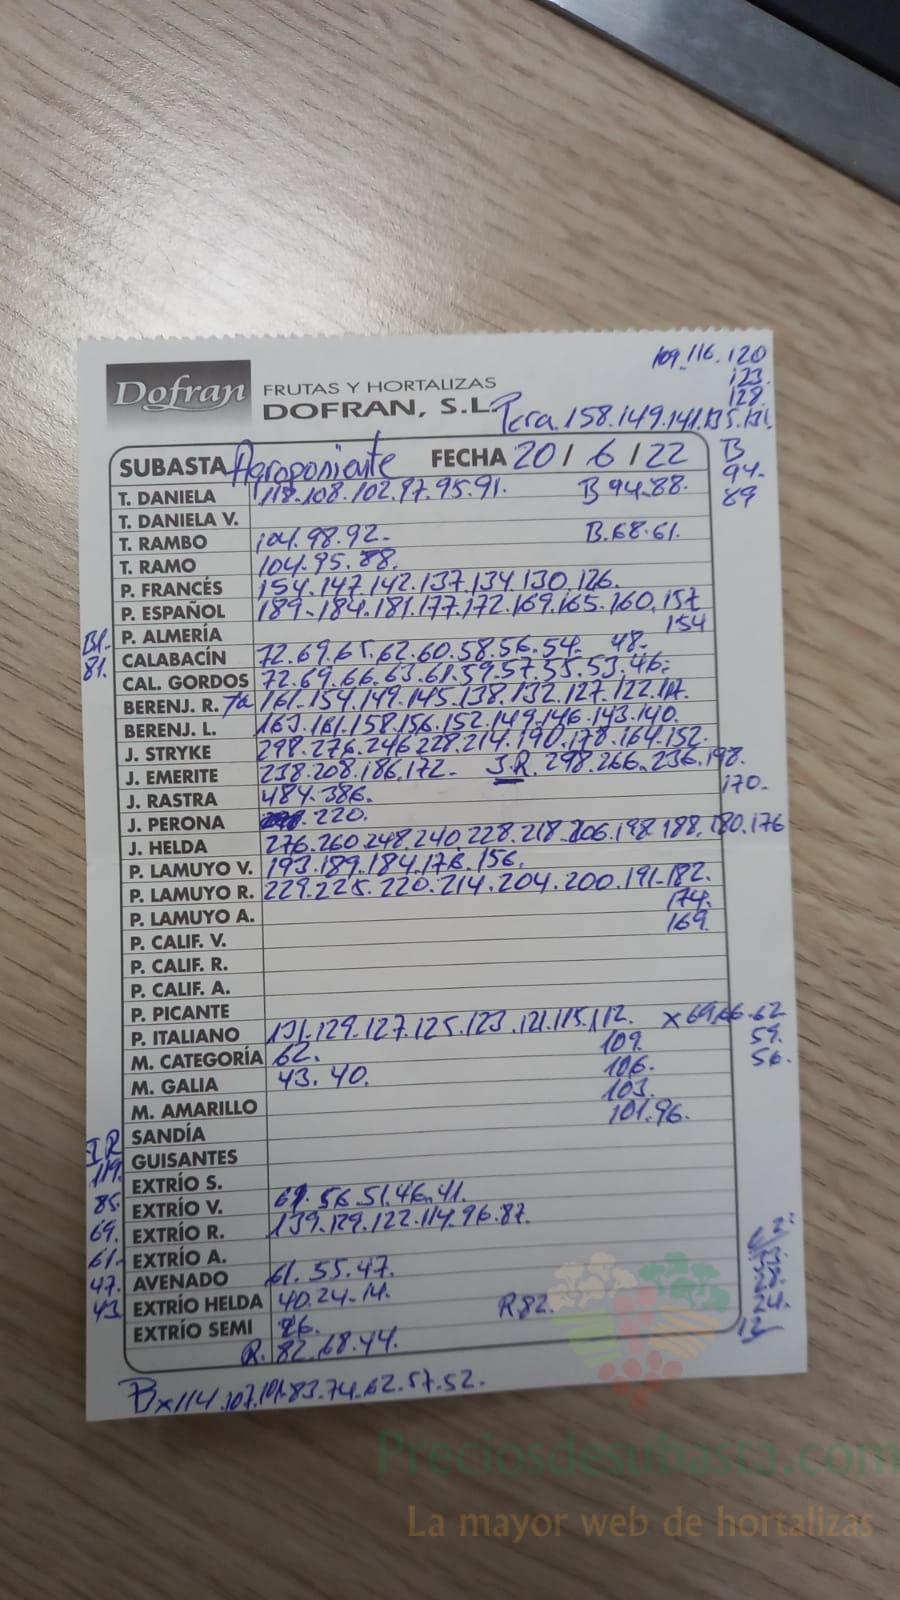 109.116.120
123.
128.
Dofran FRUTAS Y HORTALIZAS
DOFRAN, S.L. Pera.158.149.141.135.131.
SUBASTA Agroponiente FECHA 20 / 6 / 22 B
94.
89
T. DANIELA 118.108.102.97.95.91. B 94.88.
T. DANIELA V.
T. RAMBO 104.98.92. B.68.61.
T. RAMO 104.95.88.
P. FRANCÉS 154.147.142.137.134.130.126.
P. ESPAÑOL 189.184.181.177.172.169.165.160.157
154
P. ALMERÍA
81.
CALABACÍN 72.69.65.62.60.58.56.54. 48.
CAL. GORDOS 72.69.66.63.61.59.57.55.53.46.
BERENJ. R. 161.154.149.145.138.132.127.122.117.
BERENJ. L. 163.161.158.156.152.149.146.143.140.
J. STRYKE 298.276.246.228.214.190.178.164.152.
J. EMERITE 238.208.186.172. J.R. 298.266.236.198.
170.
J. RASTRA 484.386.
J. PERONA 220.
J. HELDA 276.260.248.240.228.218.206.198.188.180.176
P. LAMUYO V. 193.189.184.178.156.
P. LAMUYO R. 229.225.220.214.204.200.191.182.
174.
169.
P. LAMUYO A.
P. CALIF. V.
P. CALIF. R.
P. CALIF. A.
P. PICANTE
P. ITALIANO 131.129.127.125.123.121.115.112. x 69.66.62
109. 59.
106. 56.
103.
101.96.
M. CATEGORÍA 62.
M. GALIA 43.40.
M. AMARILLO
SANDÍA
GUISANTES
119.
EXTRÍO S.
85. EXTRÍO V. 56.51.46.41.
69. EXTRÍO R. 139.129.122.114.96.87.
61. EXTRÍO A.
47. AVENADO 61.55.47.
43. EXTRÍO HELDA 40.24.14. R.82.
28.
24.
12
EXTRÍO SEMI 26.
R. 82.68.44.
B x 114.107.101.83.74.62.57.52.
Preciosdesubasta.com
La mayor web de hortalizas